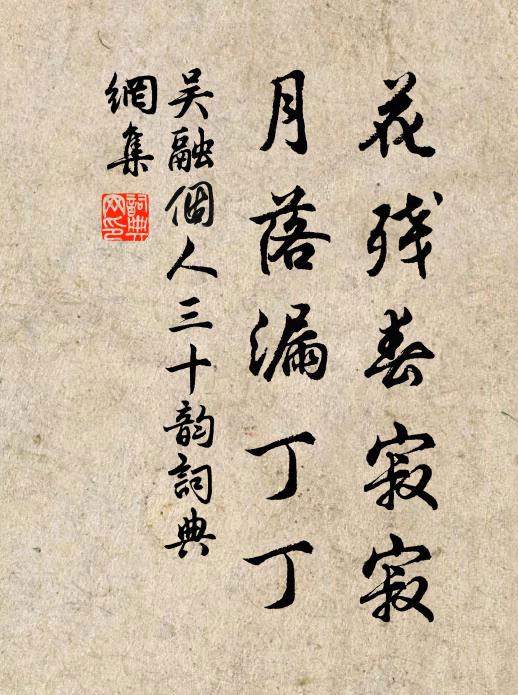 花残春寂寂
月落漏丁丁
吴融個人三十韵詞典
網集
詞典
网印